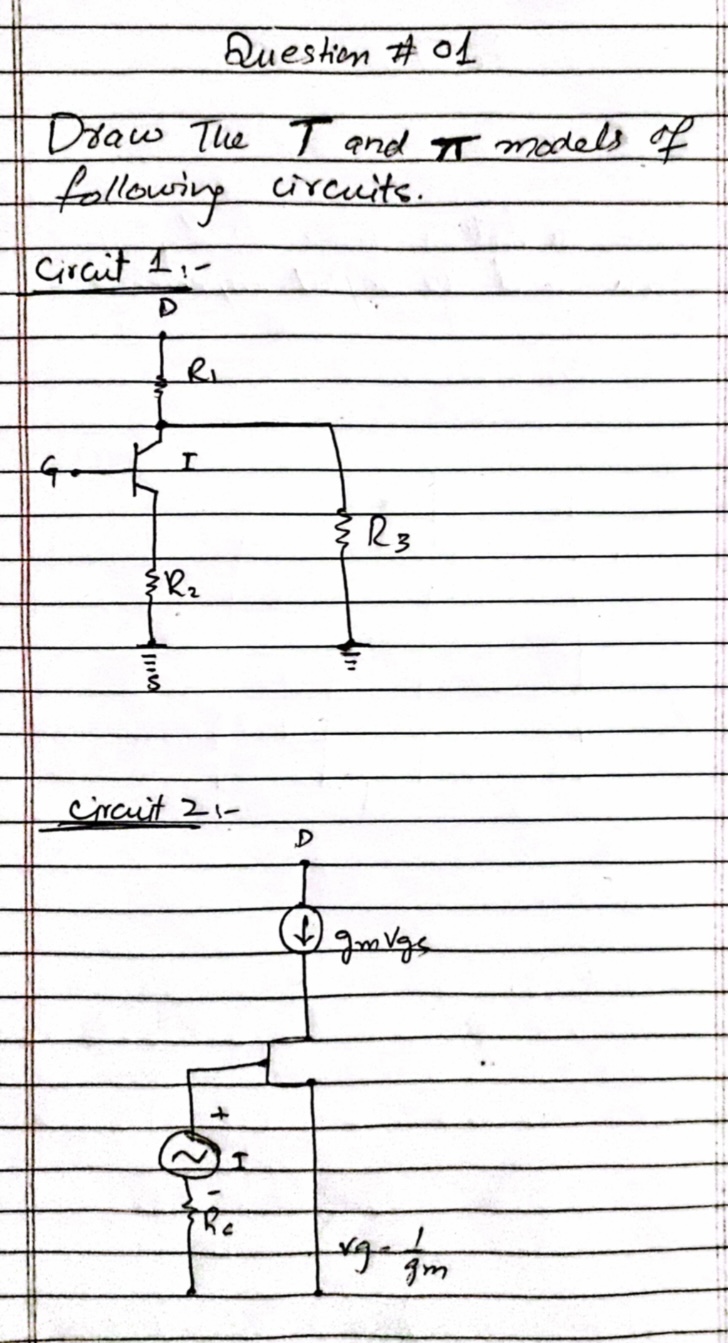 Question # 01
Draw The T and π models of
following circuits.
Circuit 1:-
D
R1
G
I
R3
R2
S
Circuit 2:-
D
gmvgs
+
I
-
vg = 1/gm